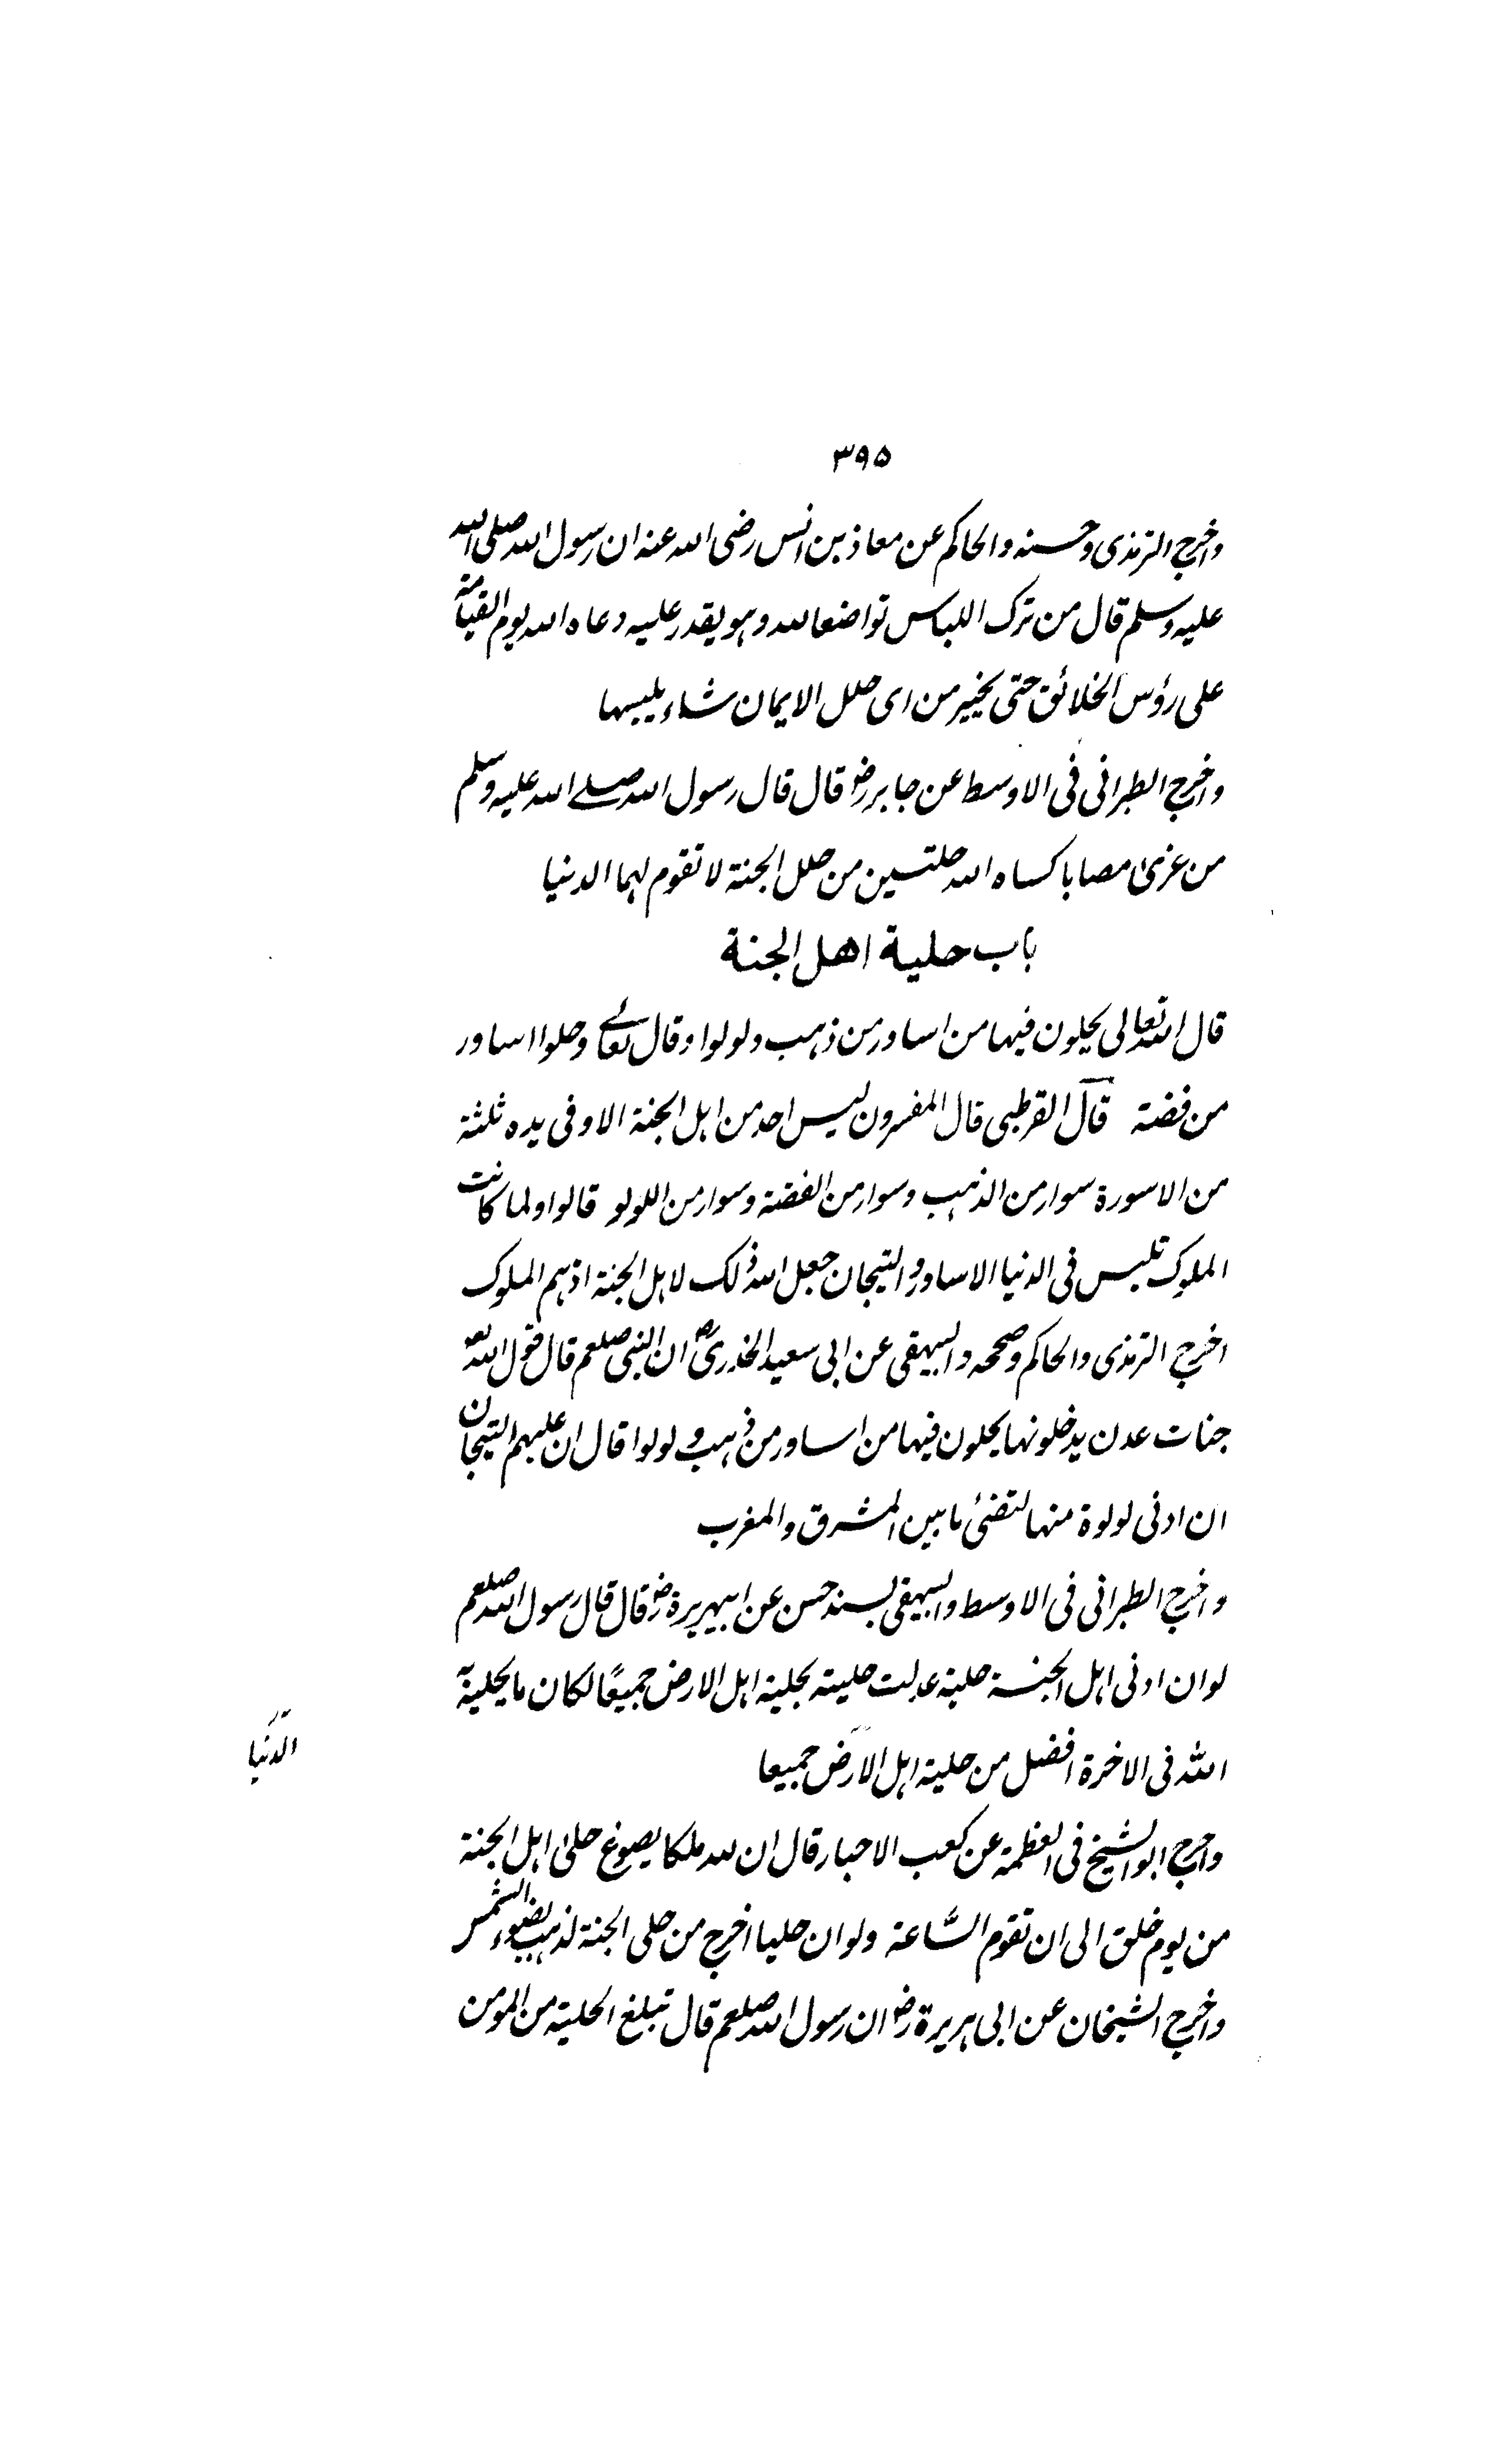 ۳۹۵
واخرج الترمذى وحسنه والحاكم عن معاذ بن انس رضى الله عنه ان رسول الله صلى الله
عليه وسلم قال من ترك اللباس تواضعا لله وهو يقدر عليه دعاه الله يوم القيامة
على رؤس الخلائق حتى يخير من اى حلل الايمان شاء يلبسها
واخرج الطبرانى فى الاوسط عن جابر رض قال قال رسول الله صلے الله عليه وسلم
من عزىٰ مصابا كساه الله حلتين من حلل الجنة لا تقوم لهما الدنيا
باب حلية اهل الجنة
قال الله تعالى يحلون فيها من اساور من ذهب ولولوا وقال تعالے وحلوا اساور
من فضة قال القرطبى قال المفسرون ليس احد من اهل الجنة الا وفى يده ثلثة
من الاسورة سوار من الذهب وسوار من الفضة وسوار من اللولو قالوا ولما كانت
الملوك تلبس فى الدنيا الاساور والتيجان جعل الله ذلك لاهل الجنة اذ هم الملوك
اخرج الترمذى والحاكم وصححه والبيهقى عن ابى سعيد الخدرى رض ان النبى صلعم قال قول الله تع
جنات عدن يدخلونها يحلون فيها من اساور من ذهب ولولوا قال ان عليهم التيجان
ان ادنى لولوة منها لتضئ ما بين المشرق والمغرب
واخرج الطبرانى فى الاوسط والبيهقى بسند حسن عن ابيهريرة رض قال قال رسول الله صلعم
لو ان ادنى اهل الجنة حلية عدلت حليته بحلية اهل الارض جميعًا لكان ما يحليه به
الله فى الاخرة افضل من حلية اهل الارض جميعا
الدنيا
واخرج ابو الشيخ فى العظمة عن كعب الاحبار قال ان لله ملكا يصوغ حلىٰ اهل الجنة
من يوم خلق الى ان تقوم السّاعة ولو ان حليا اخرج من حلى الجنة لذهب بضوء الشمس
واخرج الشيخان عن ابى هريرة رض ان رسول الله صلعم قال تبلغ الحلية من المومن